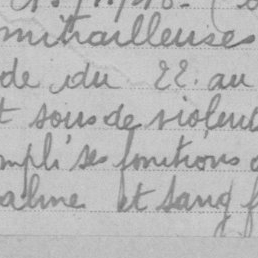 mitrailleuses
de du 22 au
t sous de violent
mpli ses fonctions
calme et sang f